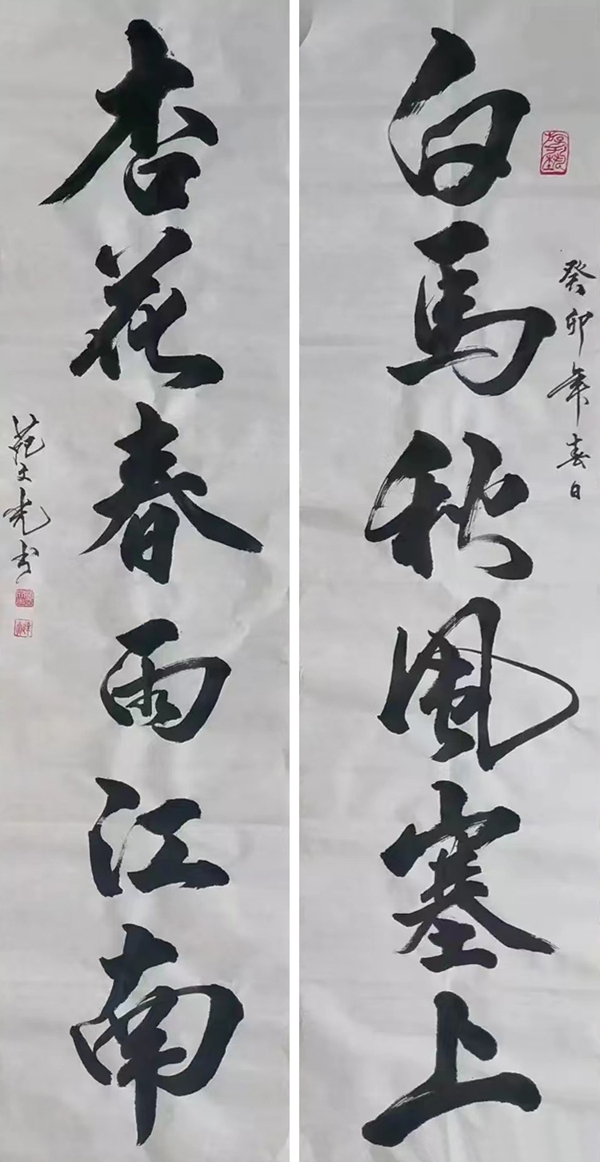 癸卯年春日
白马秋風塞上
杏花春雨江南
范文光书